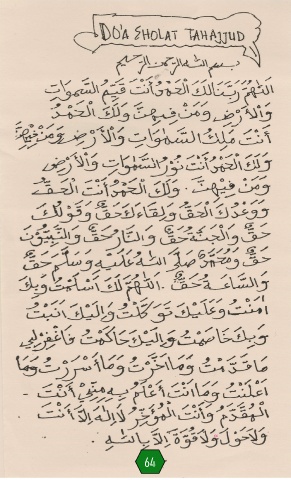 DO'A SHOLAT TAHAJJUD
بسم الله الرحمن الرحيم
اَللّٰهُمَّ رَبَّنَا لَكَ الْحَمْدُ أَنْتَ قَيِّمُ السَّمٰوَاتِ
وَالْأَرْضِ وَمَنْ فِيْهِنَّ وَلَكَ الْحَمْدُ
أَنْتَ مَلِكُ السَّمٰوَاتِ وَالْأَرْضِ وَمَنْ فِيْهِنَّ
وَلَكَ الْحَمْدُ أَنْتَ نُوْرُ السَّمٰوَاتِ وَالْأَرْضِ
وَمَنْ فِيْهِنَّ . وَلَكَ الْحَمْدُ أَنْتَ الْحَقُّ
وَوَعْدُكَ الْحَقُّ وَلِقَاءُكَ حَقٌّ وَقَوْلُكَ
حَقٌّ وَالْجَنَّةُ حَقٌّ وَالنَّارُ حَقٌّ وَالنَّبِيُّوْنَ
حَقٌّ وَمُحَمَّدٌ صَلَّى اللهُ عَلَيْهِ وَسَلَّمَ حَقٌّ
وَالسَّاعَةُ حَقٌّ . اَللّٰهُمَّ لَكَ أَسْلَمْتُ وَبِكَ
اٰمَنْتُ وَعَلَيْكَ تَوَكَّلْتُ وَإِلَيْكَ أَنَبْتُ
وَبِكَ خَاصَمْتُ وَإِلَيْكَ حَاكَمْتُ فَاغْفِرْلِيْ
مَا قَدَّمْتُ وَمَا أَخَّرْتُ وَمَا أَسْرَرْتُ وَمَا
أَعْلَنْتُ وَمَا أَنْتَ أَعْلَمُ بِهِ مِنِّيْ أَنْتَ -
الْمُقَدِّمُ وَأَنْتَ الْمُؤَخِّرُ لَا إِلٰهَ إِلَّا أَنْتَ
وَلَا حَوْلَ وَلَا قُوَّةَ إِلَّا بِاللهِ .
64